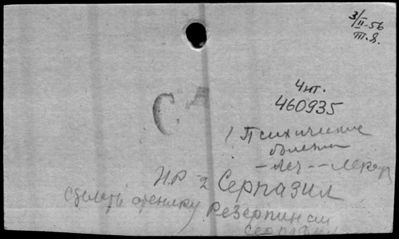 3/II-56
т.я.
Чит.
460935
1 Психические
болезни
-леч--лекар
НР 2 Серпазил
сделать отсылку Резерпин см
Серпазил